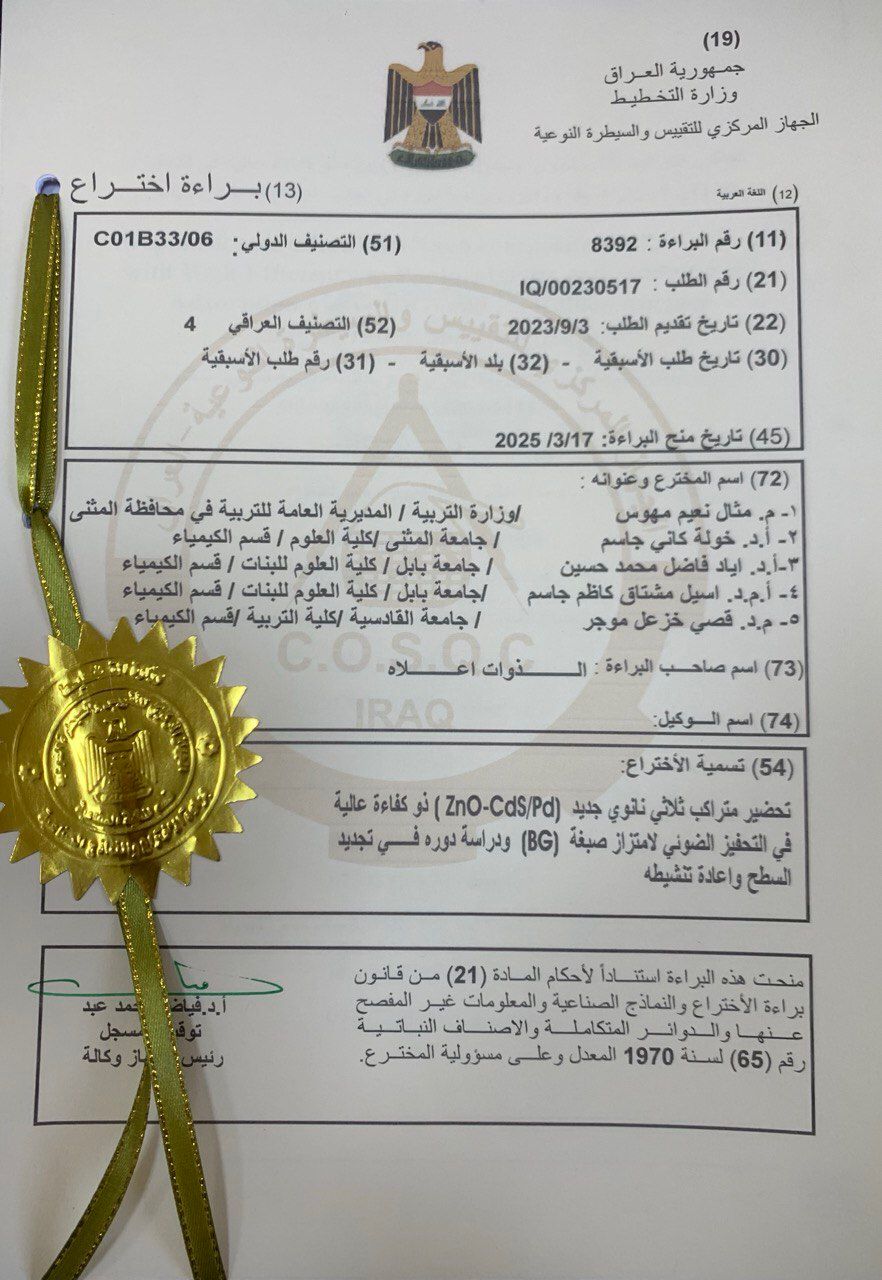 (19)
جمهورية العراق
وزارة التخطيط
الجهاز المركزي للتقييس والسيطرة النوعية
(12) اللغة العربية
(13) براءة اختراع
(11) رقم البراءة : 8392 (51) التصنيف الدولي: C01B33/06
(21) رقم الطلب : IQ/00230517
(22) تاريخ تقديم الطلب: 2023/9/3 (52) التصنيف العراقي 4
(30) تاريخ طلب الأسبقية - (32) بلد الأسبقية - (31) رقم طلب الأسبقية
(45) تاريخ منح البراءة: 2025 /3/17
(72) اسم المخترع وعنوانه :
١- م. مثال نعيم مهوس /وزارة التربية / المديرية العامة للتربية في محافظة المثنى
٢- أ.د. خولة كاني جاسم / جامعة المثنى /كلية العلوم / قسم الكيمياء
٣-أ.د. اياد فاضل محمد حسين / جامعة بابل / كلية العلوم للبنات / قسم الكيمياء
٤- أ.م.د. اسيل مشتاق كاظم جاسم /جامعة بابل / كلية العلوم للبنات / قسم الكيمياء
٥- م.د. قصي خزعل موجر / جامعة القادسية /كلية التربية /قسم الكيمياء
C.O.S.Q.C
(73) اسم صاحب البراءة : الذوات اعلاه
IRAQ
(74) اسم الوكيل:
(54) تسمية الأختراع:
تحضير متراكب ثلاثي نانوي جديد (ZnO-CdS/Pd ) ذو كفاءة عالية
في التحفيز الضوئي لامتزاز صبغة (BG) ودراسة دوره في تجديد
السطح واعادة تنشيطه
منحت هذه البراءة استناداً لأحكام المادة (21) من قانون
براءة الأختراع والنماذج الصناعية والمعلومات غير المفصح
عنها والدوائر المتكاملة والاصناف النباتية
رقم (65) لسنة 1970 المعدل وعلى مسؤولية المخترع.
أ.د.فياض محمد عبد
توقيع المسجل
رئيس الجهاز وكالة